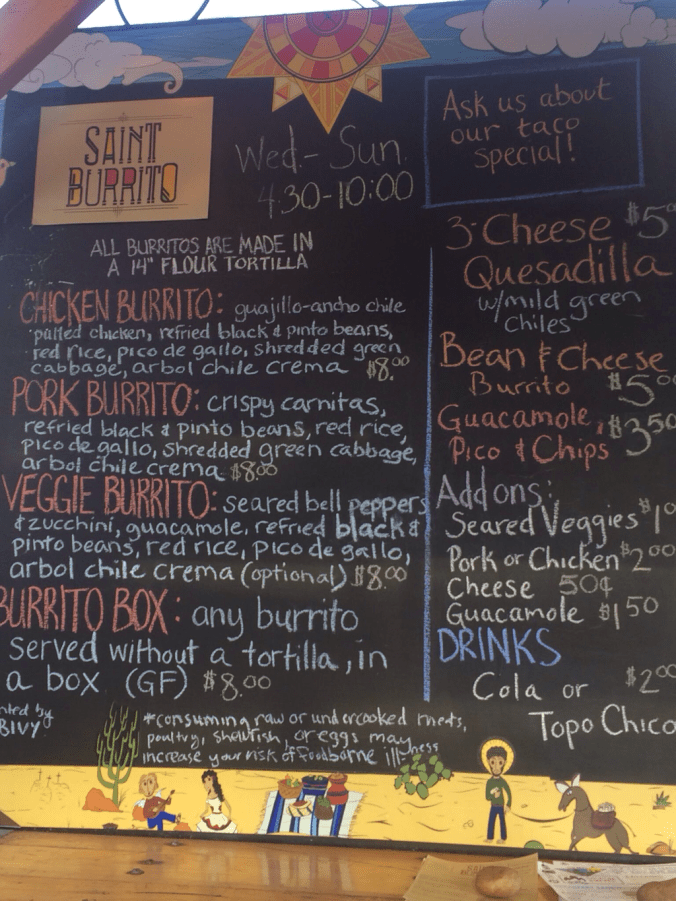 SAINT
BURRITO
Wed.- Sun.
4:30-10:00
Ask us about
our taco
special!
ALL BURRITOS ARE MADE IN
A 14" FLOUR TORTILLA
CHICKEN BURRITO: guajillo-ancho chile
pulled chicken, refried black & pinto beans,
red rice, pico de gallo, shredded green
cabbage, arbol chile crema $8.00
PORK BURRITO: crispy carnitas,
refried black & pinto beans, red rice,
pico de gallo, shredded green cabbage,
arbol chile crema $8.00
VEGGIE BURRITO: seared bell peppers
& zucchini, guacamole, refried black &
pinto beans, red rice, pico de gallo,
arbol chile crema (optional) $8.00
BURRITO BOX: any burrito
served without a tortilla, in
a box (GF) $8.00
3-Cheese $5
Quesadilla
w/mild green
chiles
Bean & Cheese
Burrito $5
Guacamole, $3.50
Pico & Chips
Add ons:
Seared Veggies $1
Pork or Chicken $2.00
Cheese 50¢
Guacamole $1.50
DRINKS
Cola or $2.00
Topo Chico
by
BIVY
*consuming raw or undercooked meats,
poultry, shellfish, or eggs may
increase your risk of foodborne illness